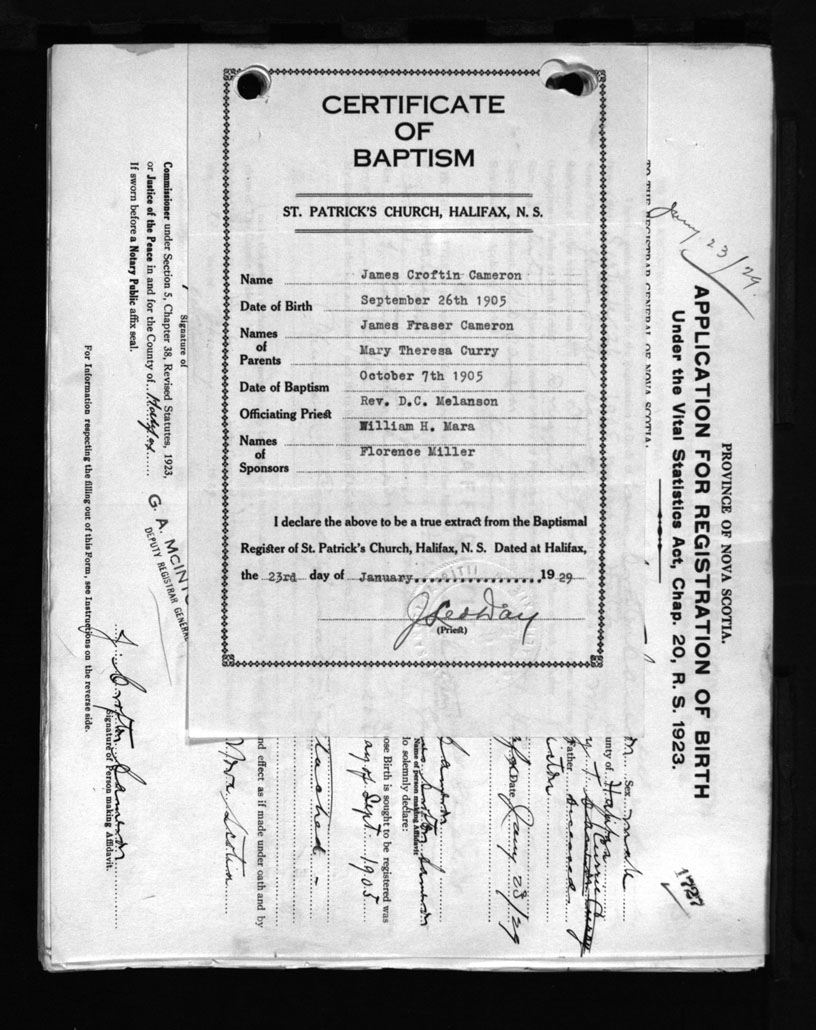 CERTIFICATE
OF
BAPTISM
ST. PATRICK'S CHURCH, HALIFAX, N. S.
Name James Croftin Cameron
Date of Birth September 26th 1905
Names of Parents James Fraser Cameron
Mary Theresa Curry
Date of Baptism October 7th 1905
Officiating Priest Rev. D.C. Melanson
Names of Sponsors William H. Mara
Florence Miller
I declare the above to be a true extract from the Baptismal
Register of St. Patrick's Church, Halifax, N. S. Dated at Halifax,
the 23rd day of January 1929
J Leo Day
(Priest)
PROVINCE OF NOVA SCOTIA.
APPLICATION FOR REGISTRATION OF BIRTH
Under the Vital Statistics Act, Chap. 20, R. S. 1923.
Jany 23/29.
TO THE REGISTRAR GENERAL OF NOVA SCOTIA.
Sex male
unty of Halifax
Father deceased
Date Jany 23/29
Name of person making Affidavit
do solemnly declare:
ose Birth is sought to be registered was
ay of Sept. 1905
tached -
nd effect as if made under oath and by
Nova Scotia
Signature of
Commissioner under Section 5, Chapter 38, Revised Statutes, 1923,
or Justice of the Peace in and for the County of Halifax
If sworn before a Notary Public affix seal.
G. A. MCINTO
DEPUTY REGISTRAR GENERAL
J. Croftin Cameron
Signature of Person making Affidavit.
For Information respecting the filling out of this Form, see Instructions on the reverse side.